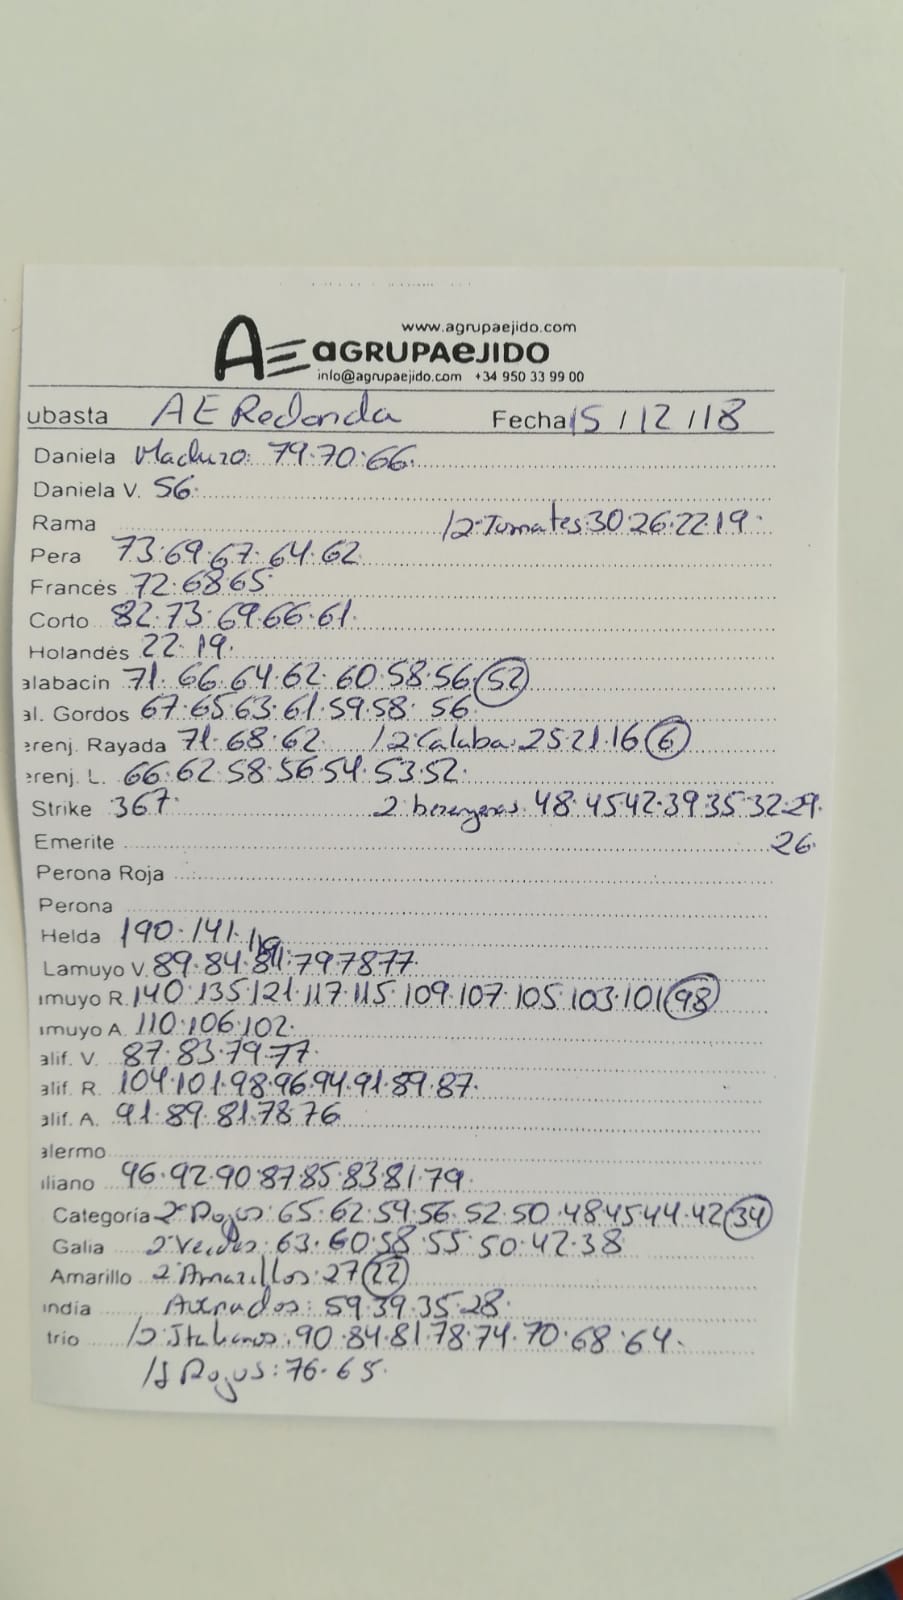 www.agrupaejido.com
AE aGRUPAeJIDO
info@agrupaejido.com +34 950 33 99 00
ubasta AE Redonda Fecha 15/12/18
Daniela Maduro: 79.70.66.
Daniela V. 56.
Rama /2.Tomates:30.26.22.19.
Pera 73.69.67.64.62
Francés 72.68.65.
Corto 82.73.69.66.61.
Holandés 22.19.
alabacin 71.66.64.62.60.58.56 52
al. Gordos 67.65.63.61.59.58.56
erenj. Rayada 71.68.62 /2 Calaba:25.21.16 6
erenj. L. 66.62.58.56.54.53.52.
Strike 367. 2 berengenas 48.45.42.39.35.32.29.
Emerite 26.
Perona Roja
Perona
Helda 190.141.
Lamuyo V. 89.84.81.79.78.77
muyo R. 140.135.121.117.115.109.107.105.103.101 98
muyo A. 110.106.102.
alif. V. 87.83.79.77.
alif. R. 104.101.98.96.94.91.89.87.
alif. A. 91.89.81.78.76
alermo
iliano 96.92.90.87.85.83.81.79.
Categoría 2ª Rojos:65.62.59.56.52.50.48.45.44.42 34
Galia 2 Verdes:63.60.58.55.50.42.38
Amarillo 2 Amarillos:27 22
india Asurados: 59.39.35.28.
trio /2 Italianos:90.84.81.78.74.70.68.64.
Rojos:76.65.